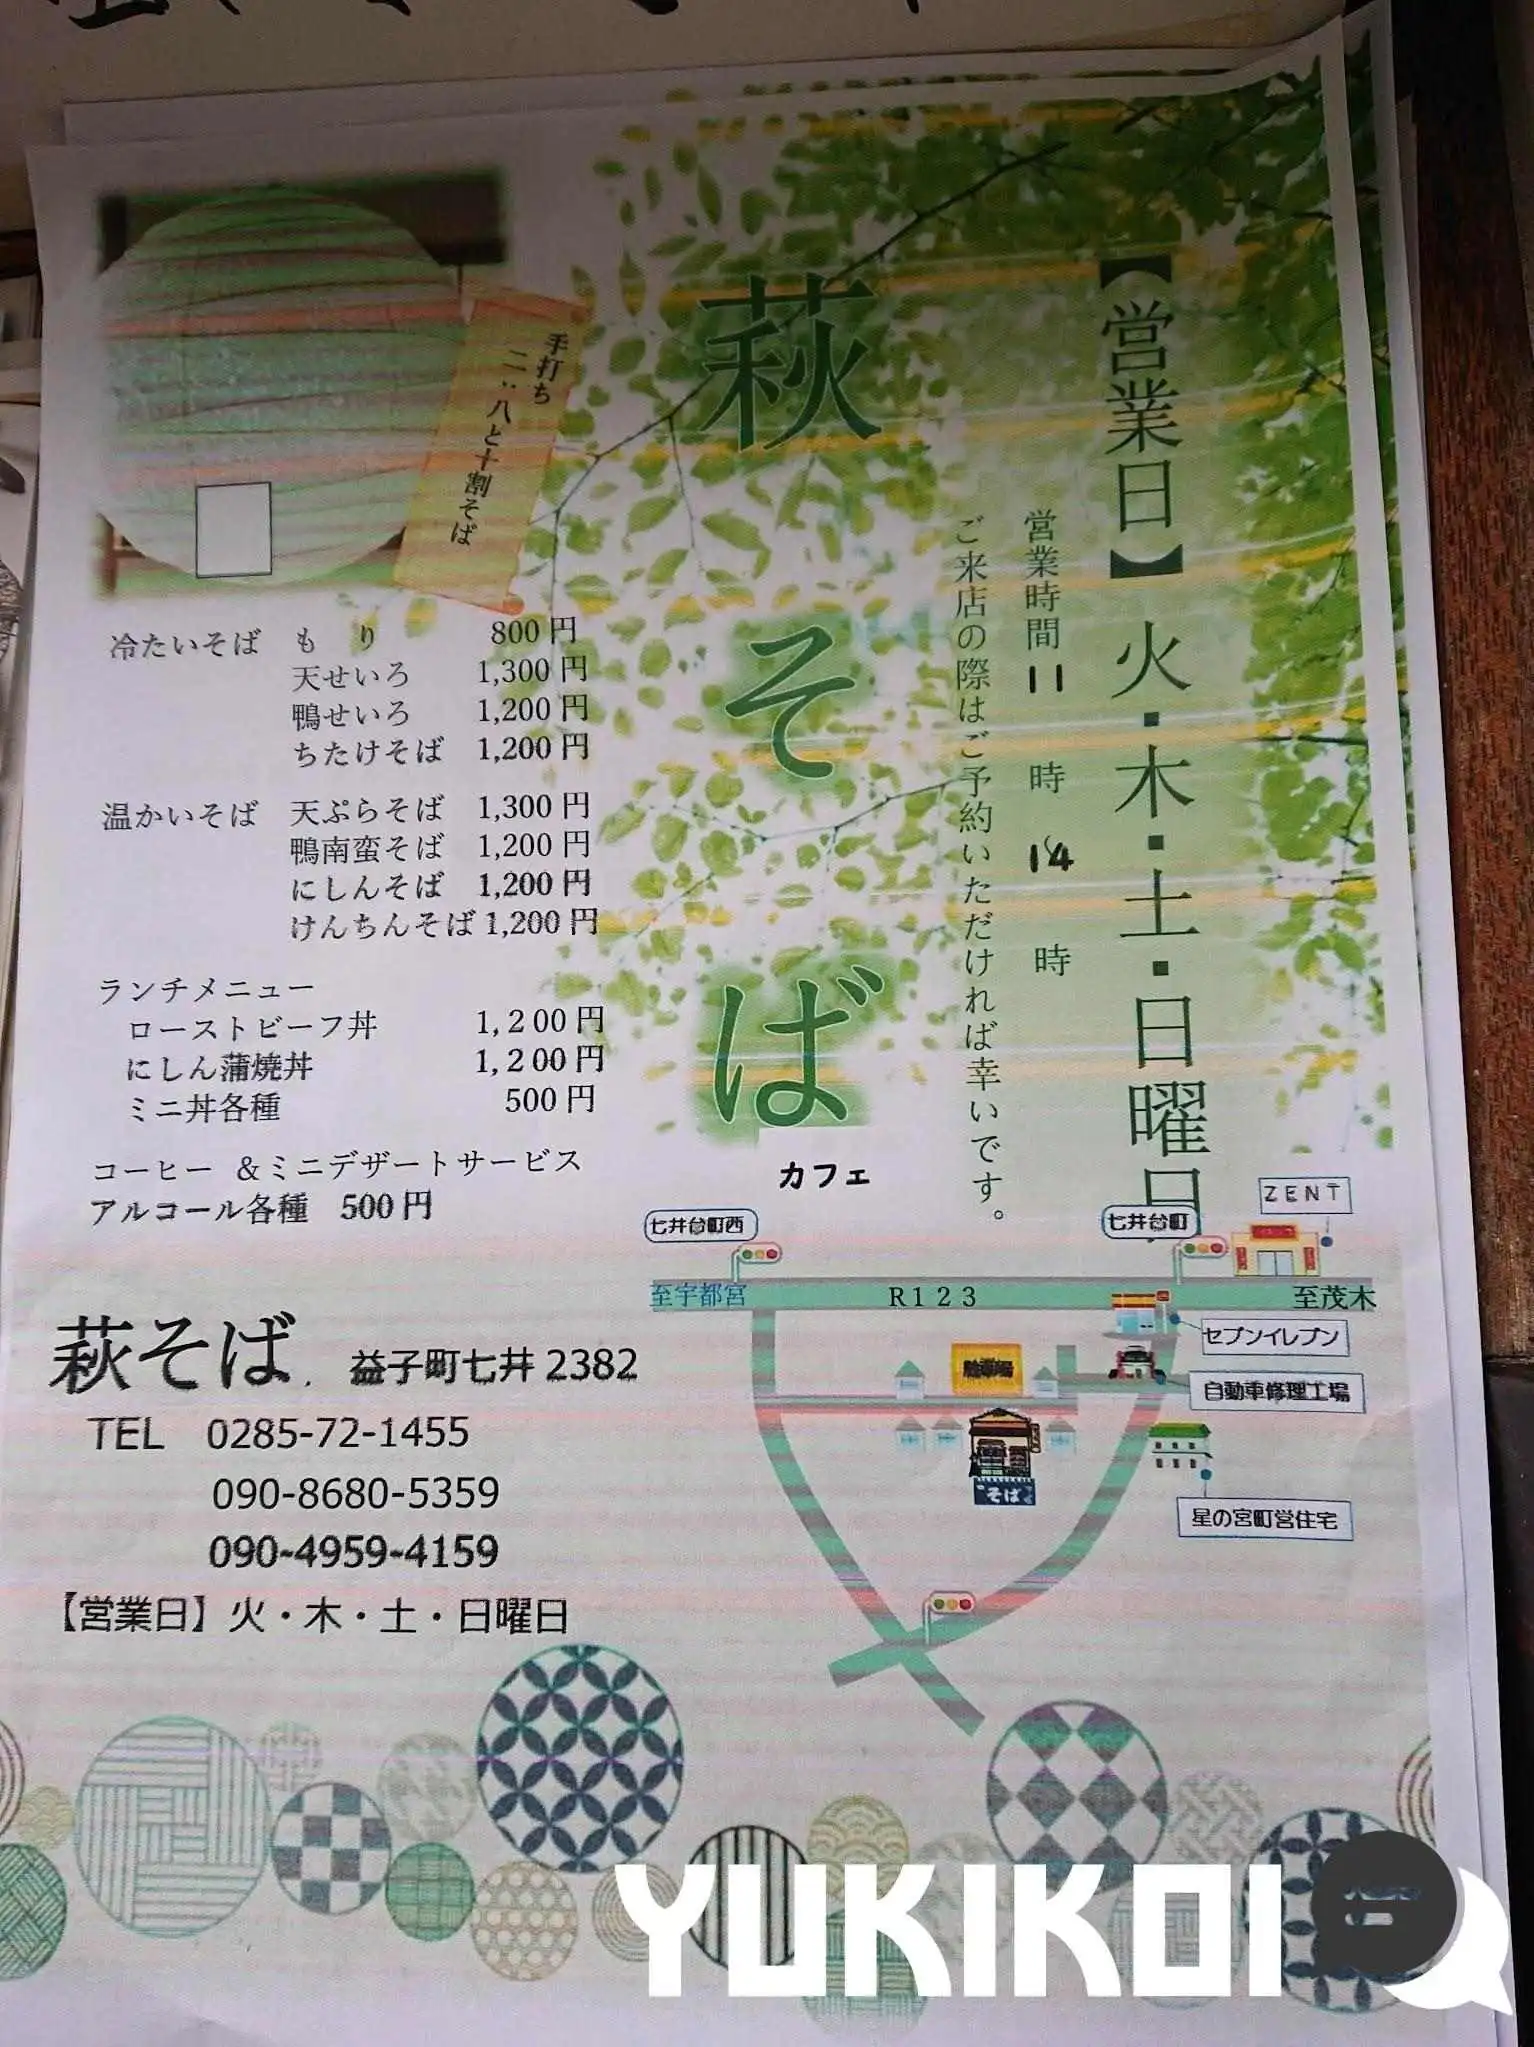 【営業日】火・木・土・日曜日
営業時間 11 時 14 時
ご来店の際はご予約いただければ幸いです。
萩そば
カフェ
手打ち
二:八と十割そば
冷たいそば もり 800円
天せいろ 1,300円
鴨せいろ 1,200円
ちたけそば 1,200円
温かいそば 天ぷらそば 1,300円
鴨南蛮そば 1,200円
にしんそば 1,200円
けんちんそば 1,200円
ランチメニュー
ローストビーフ丼 1,200円
にしん蒲焼丼 1,200円
ミニ丼各種 500円
コーヒー &ミニデザートサービス
アルコール各種 500円
萩そば. 益子町七井2382
TEL 0285-72-1455
090-8680-5359
090-4959-4159
【営業日】火・木・土・日曜日
ZENT
七井台町西
七井台町
至宇都宮
R123
至茂木
セブンイレブン
駐車場
自動車修理工場
そば
星の宮町営住宅
YUKIKOI